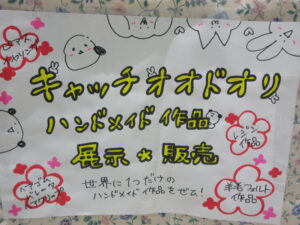 ピアス
イヤリング
キャッチオオドオリ
ハンドメイド作品
レジン
作品
展示*販売
ヘアゴム
羊毛フェルト
作品
世界に1つだけの
ハンドメイド作品をぜひ!